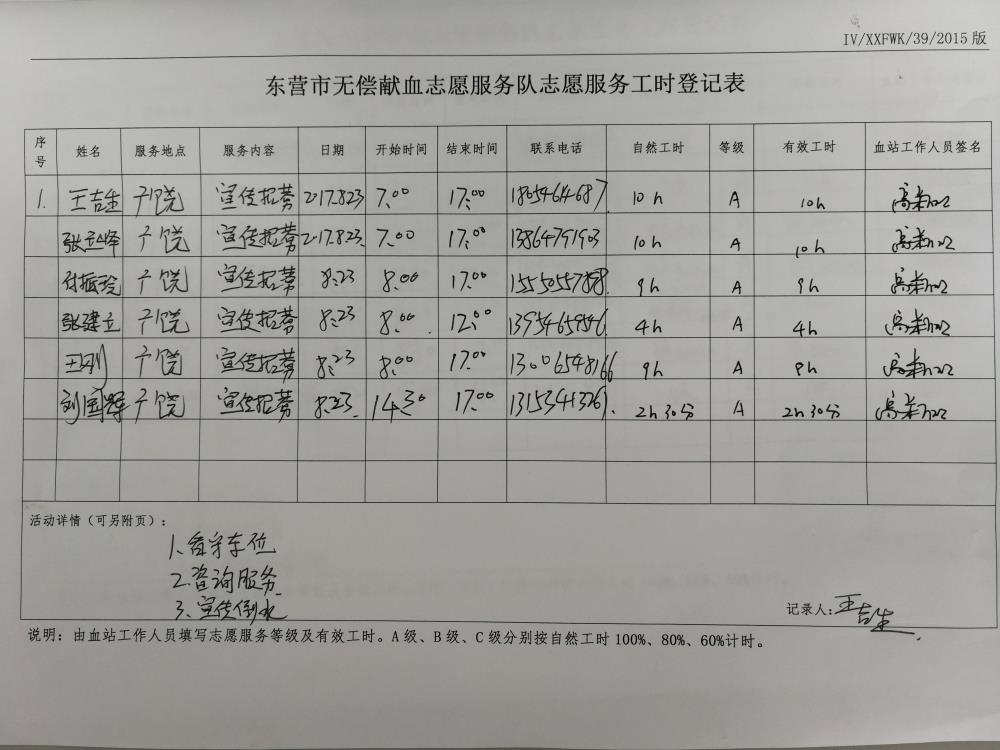 IV/XXFWK/39/2015版
东营市无偿献血志愿服务队志愿服务工时登记表
序号 姓名 服务地点 服务内容 日期 开始时间 结束时间 联系电话 自然工时 等级 有效工时 血站工作人员签名
1. 王吉生 广饶 宣传招募 2017.8.23 7.00 17.00 18054614687 10h A 10h
张孟峰 广饶 宣传招募 2017.8.23. 7.00 17.00 13864791903 10h A 10h
付振玲 广饶 宣传招募 8.23 8.00 17.00 9h A 9h
张建立 广饶 宣传招募 8.23 8.00 12.00 13954659546 4h A 4h
王刚 广饶 宣传招募 8.23 8.00 17.00 13006548166 9h A 9h
刘国辉 广饶 宣传招募 8.23. 14.30 17.00 13153413261. 2h30分 A 2h30分
活动详情（可另附页）：
1、看守车位
2、咨询服务
3、宣传倒水
记录人：王吉生
说明：由血站工作人员填写志愿服务等级及有效工时。A级、B级、C级分别按自然工时100%、80%、60%计时。